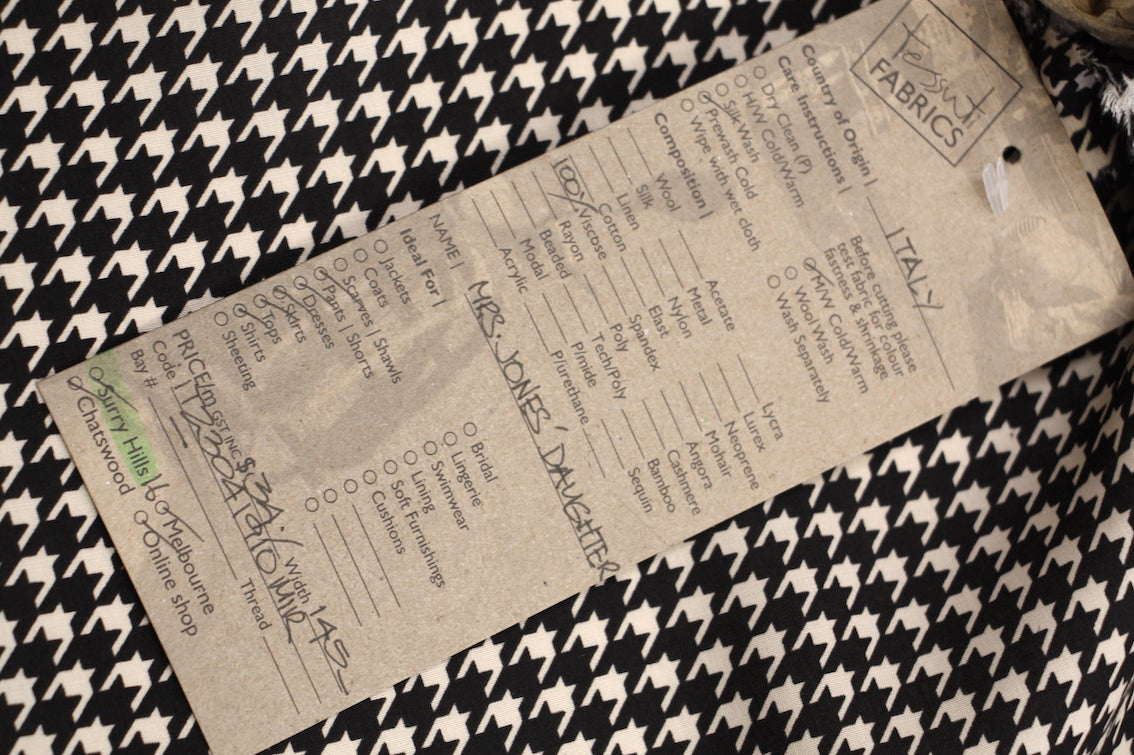 tessuti
FABRICS
Country of Origin | ITALY
Care Instructions | Before cutting please
test fabric for colour
fastness & shrinkage
Dry Clean (P) M/W Cold/Warm
H/W Cold/Warm Wool Wash
Silk Wash Wash Separately
Prewash Cold
Wipe with wet cloth
Composition |
Wool Acetate Lycra
Silk Metal Lurex
Linen Nylon Neoprene
Cotton Elast Mohair
100% Viscose Spandex Angora
Rayon Poly Cashmere
Beaded Tech/Poly Bamboo
Modal P/mide Sequin
Acrylic P/urethane
NAME | MRS. JONES' DAUGHTER
Ideal For |
Jackets Bridal
Coats Lingerie
Scarves | Shawls Swimwear
Pants | Shorts Lining
Dresses Soft Furnishings
Skirts Cushions
Tops
Shirts
Sheeting
PRICE/m GST INC Width 145
Code |
Bay # Thread
Surry Hills Melbourne
Chatswood Online shop